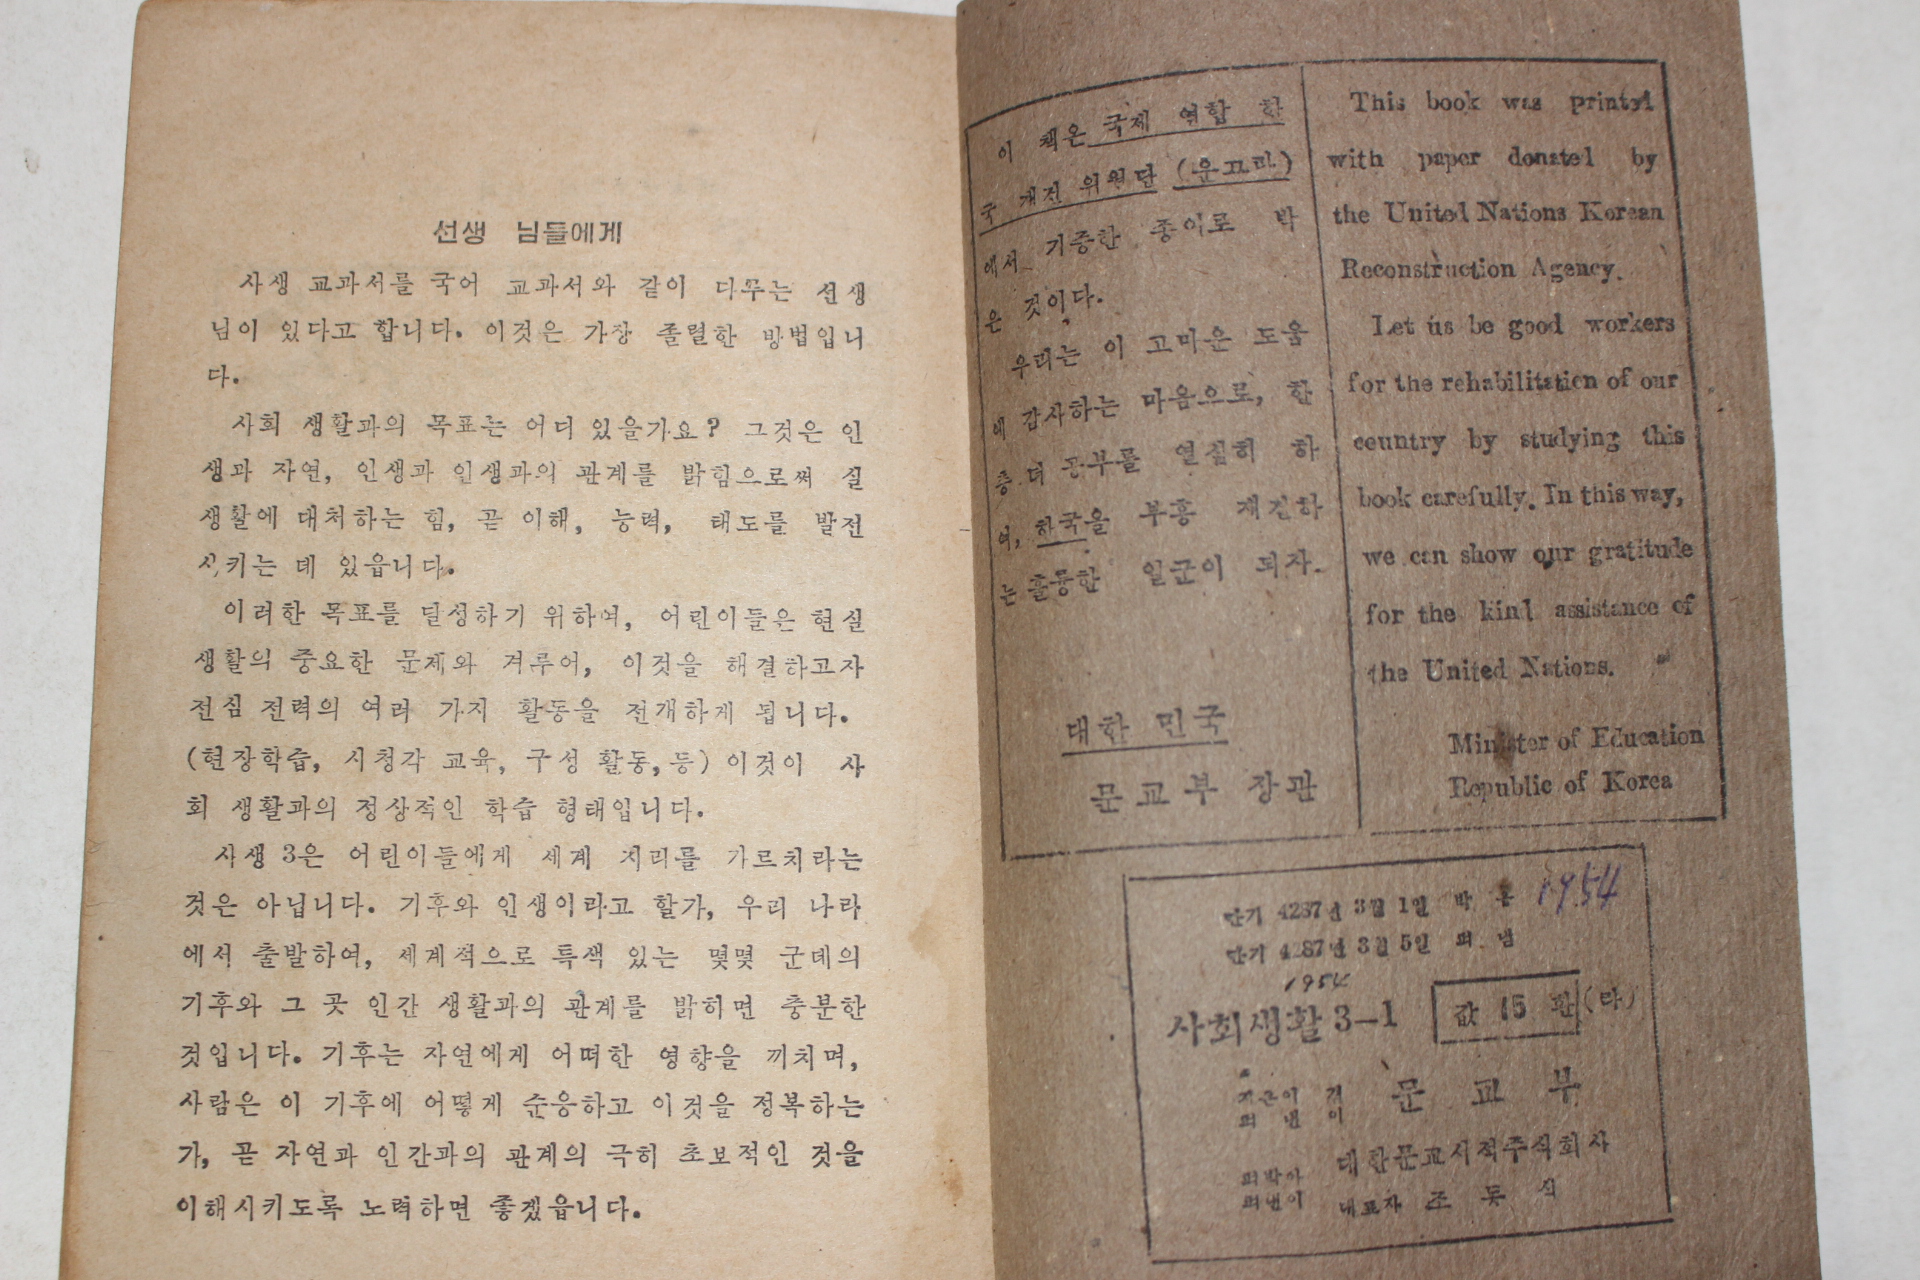 선생 님들에게
사생 교과서를 국어 교과서와 같이 다루는 선생
님이 있다고 합니다. 이것은 가장 졸렬한 방법입니
다.
사회 생활과의 목표는 어디 있을가요? 그것은 인
생과 자연, 인생과 인생과의 관계를 밝힘으로써 실
생활에 대처하는 힘, 곧 이해, 능력, 태도를 발전
시키는 데 있읍니다.
이러한 목표를 달성하기 위하여, 어린이들은 현실
생활의 중요한 문제와 겨루어, 이것을 해결하고자
전심 전력의 여러 가지 활동을 전개하게 됩니다.
(현장학습, 시청각 교육, 구성 활동, 등) 이것이 사
회 생활과의 정상적인 학습 형태입니다.
사생 3은 어린이들에게 세계 지리를 가르치라는
것은 아닙니다. 기후와 인생이라고 할가, 우리 나라
에서 출발하여, 세계적으로 특색 있는 몇몇 군데의
기후와 그 곳 인간 생활과의 관계를 밝히면 충분한
것입니다. 기후는 자연에게 어떠한 영향을 끼치며,
사람은 이 기후에 어떻게 순응하고 이것을 정복하는
가, 곧 자연과 인간과의 관계의 극히 초보적인 것을
이해시키도록 노력하면 좋겠읍니다.
이 책은 국제 연합 한
국 재건 위원단 (운끄라)
에서 기증한 종이로 박
은 것이다.
우리는 이 고마운 도움
에 감사하는 마음으로, 한
층 더 공부를 열심히 하
여, 한국을 부흥 재건하
는 훌륭한 일군이 되자.
대한 민국
문교부 장관
This book was printed
with paper donated by
the United Nations Korean
Reconstruction Agency.
Let us be good workers
for the rehabilitation of our
country by studying this
book carefully. In this way,
we can show our gratitude
for the kind assistance of
the United Nations.
Minister of Education
Republic of Korea
단기 4287년 3월 1일 박음 1954
단기 4287년 3월 5일 펴냄
1954
사회생활 3-1 값 15 환 (타)
지은이 겸
펴낸이 문교부
펴박아
펴낸이 대한문교서적주식회사
대표자 조 동 식